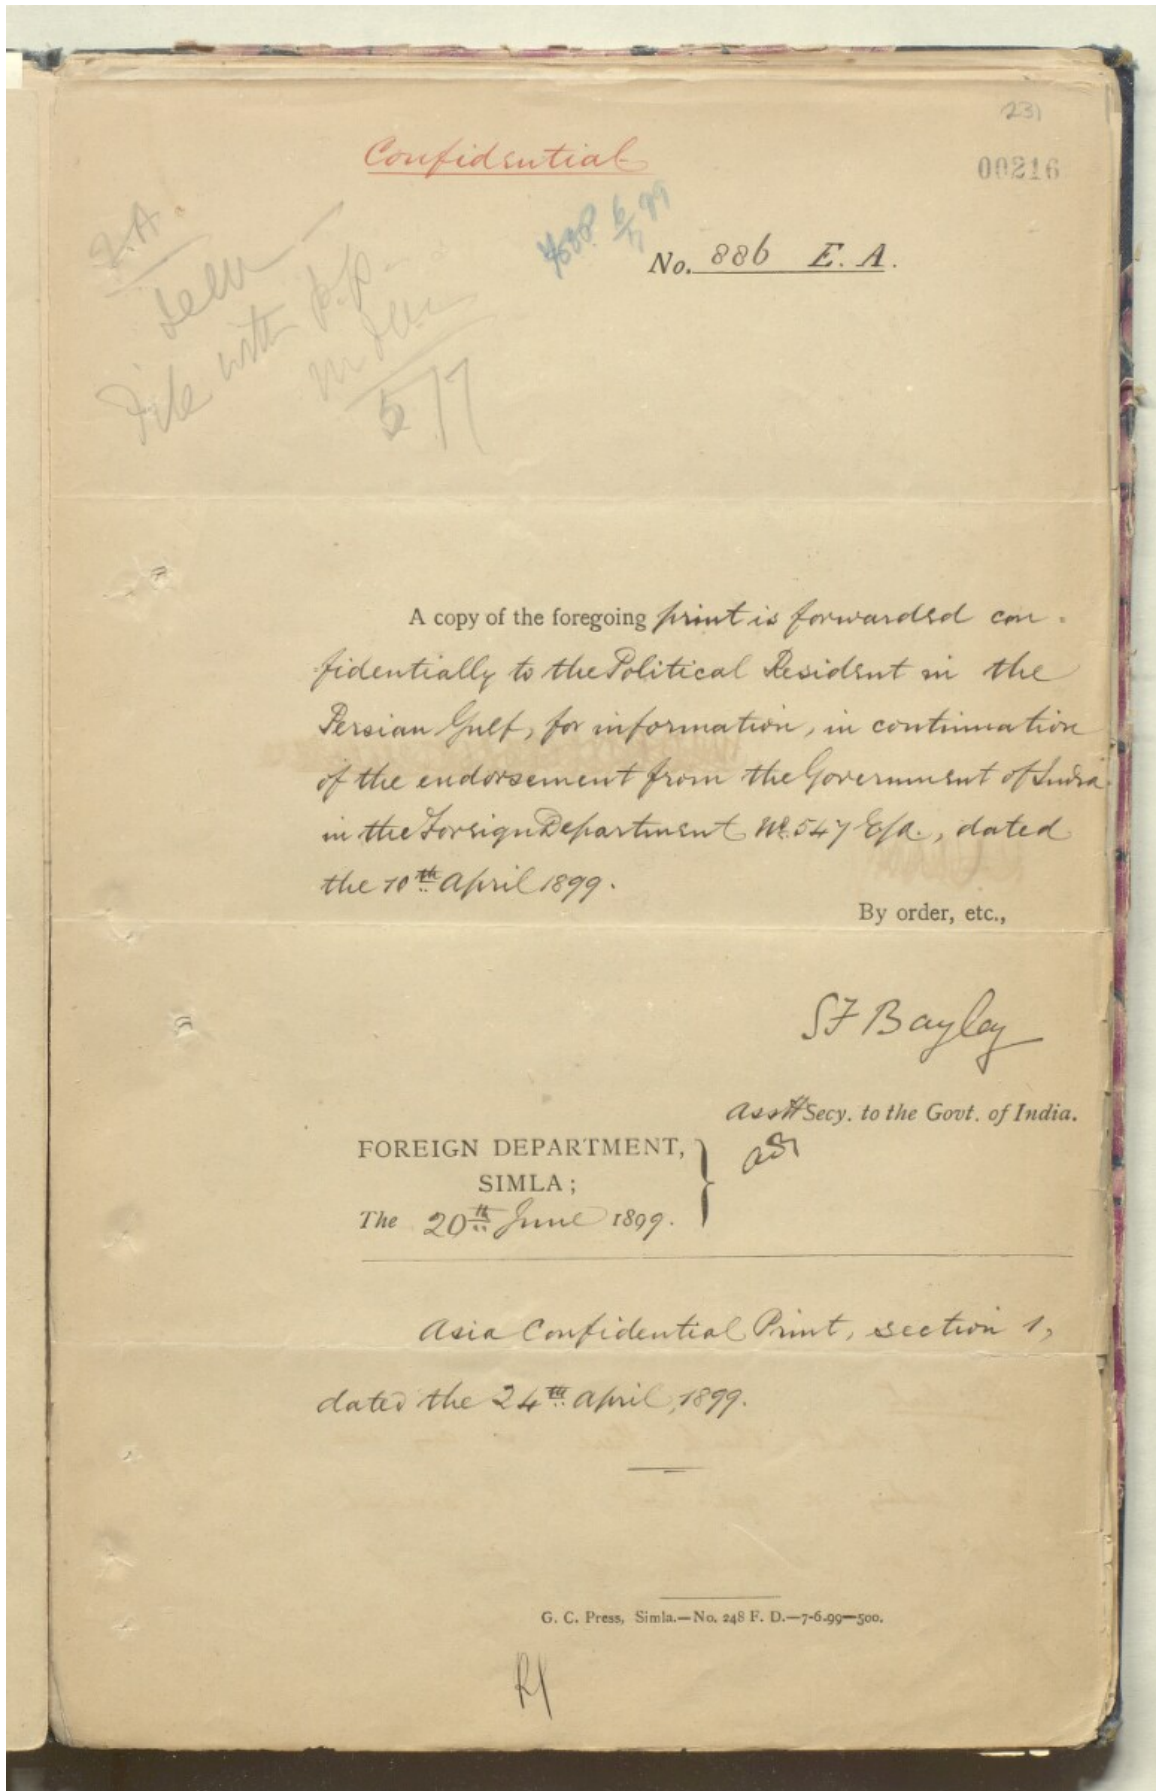 231
00216
Confidential
No. 886 E. A.
File with
5/7
A copy of the foregoing print is forwarded con-
fidentially to the Political Resident in the
Persian Gulf, for information, in continuation
of the endorsement from the Government of India
in the Foreign Department No. 547 E.A., dated
the 10th April 1899.
By order, etc.,
S F Bayley
Asstt Secy. to the Govt. of India.
FOREIGN DEPARTMENT,
SIMLA;
The 20th June 1899.
Asia Confidential Print, section 1,
dated the 24th April, 1899.
G. C. Press, Simla.—No. 248 F. D.—7-6-99—500.